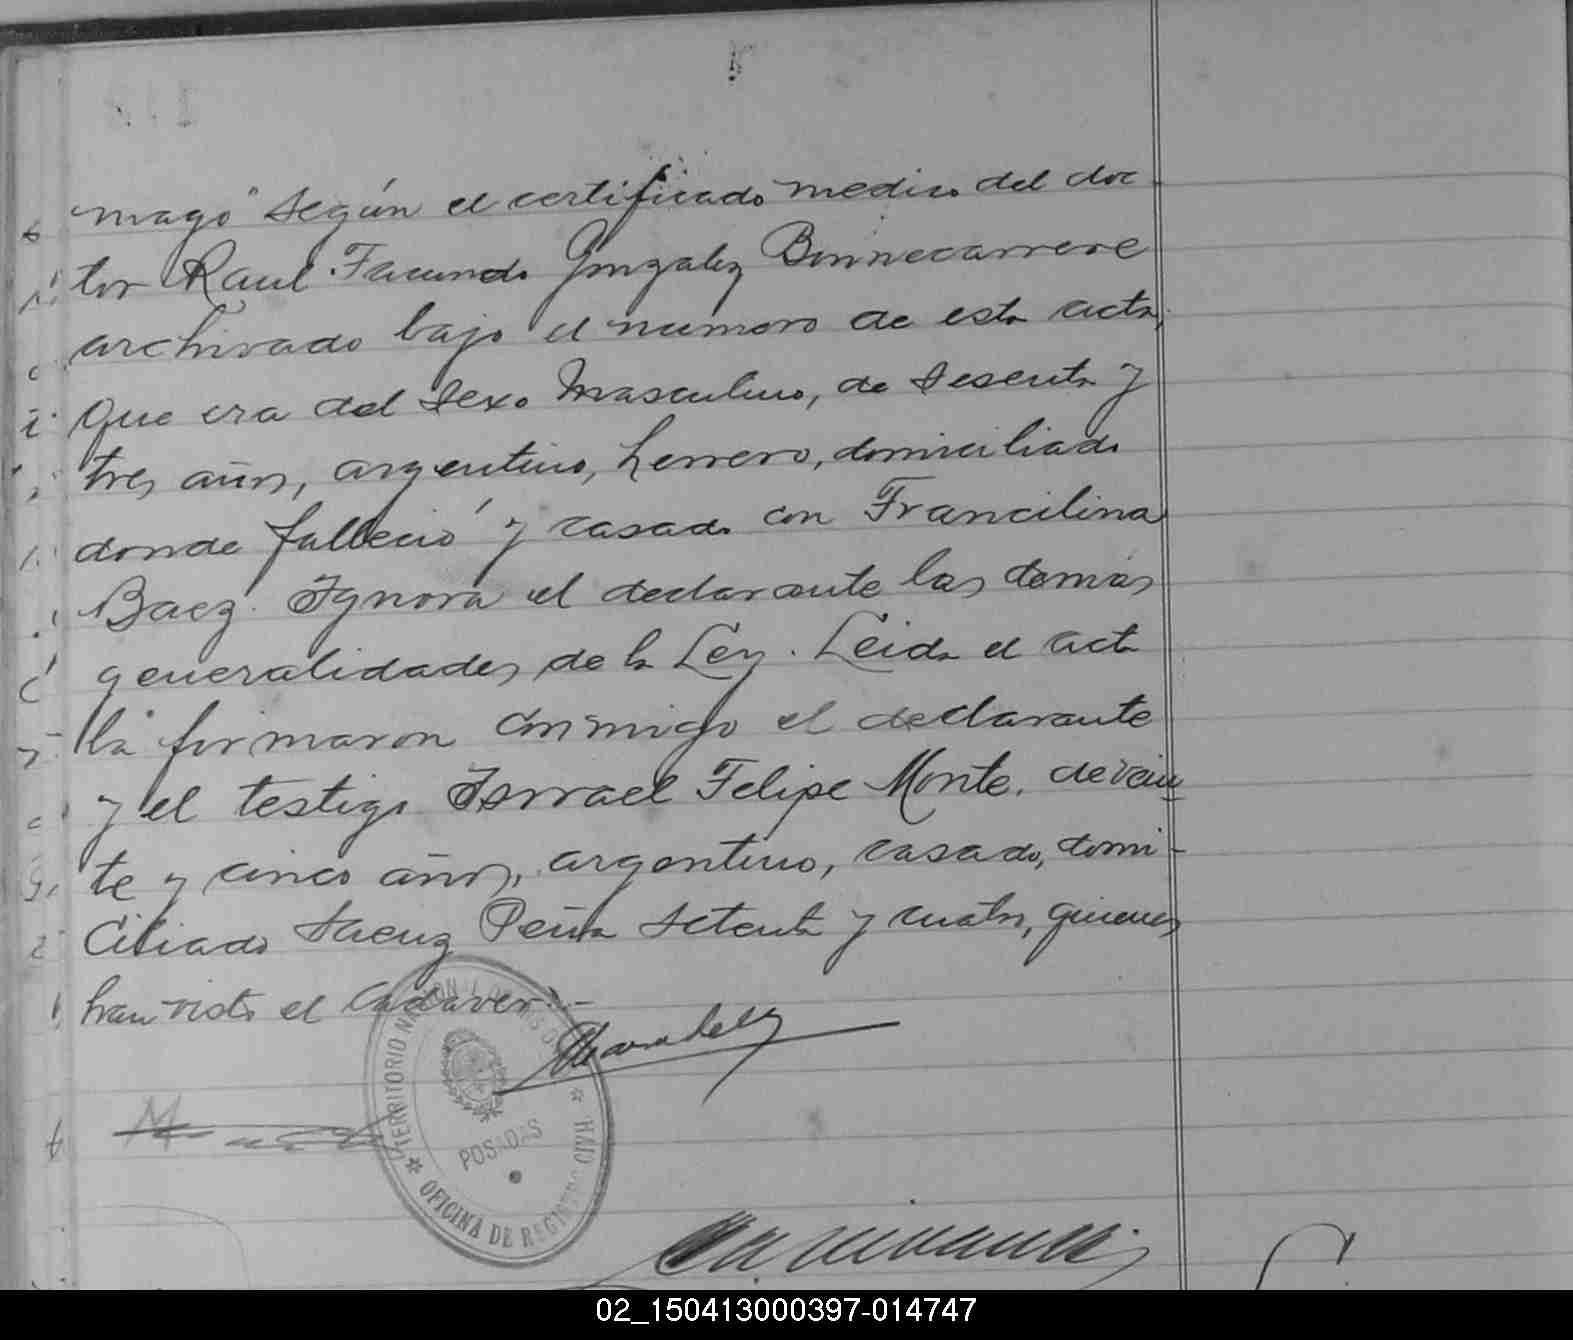 mago" según el certificado medico del doc
tor Raul Facundo Gonzalez Bonnecarrere
archivado bajo el numero de esta acta,
Que era del sexo masculino, de sesenta y
tres años, argentino, herrero, domiciliado
donde falleció y casado con Francilina
Baez. Ignora el declarante las demás
generalidades de la Ley. Leida el acta
la firmaron conmigo el declarante
y el testigo Isrrael Felipe Monte, de vein
te y cinco años, argentino, casado, domi-
ciliado Saenz Peña setenta y cuatro, quienes
han visto el cadaver.-
TERRITORIO NACIONAL DE MISIONES
POSADAS
OFICINA DE REGISTRO CIVIL
02_150413000397-014747